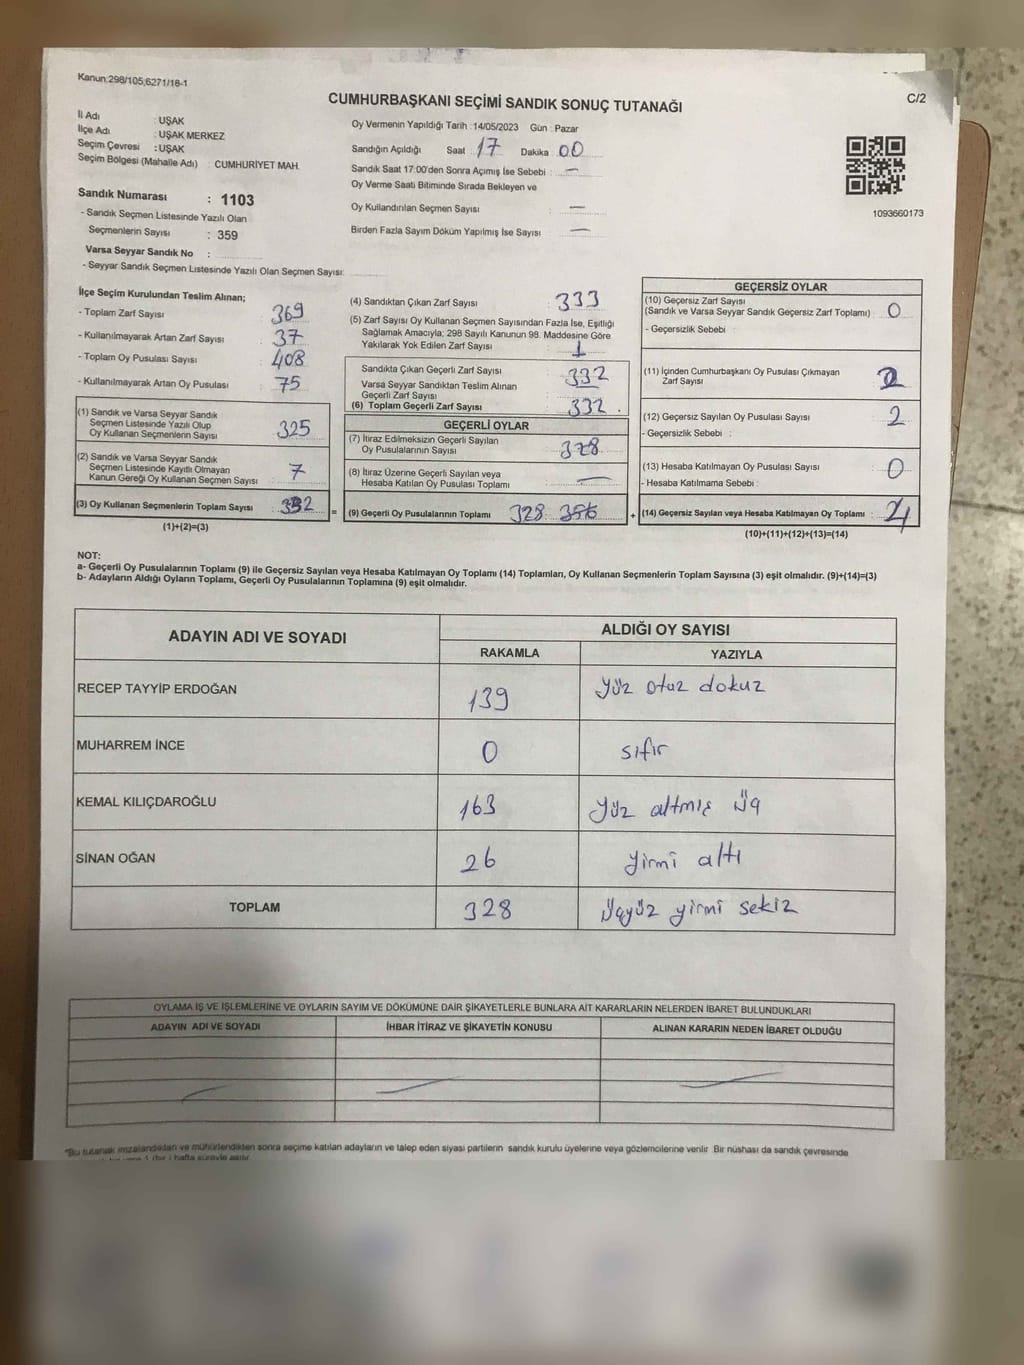 Kanun:298/105;6271/18-1
CUMHURBAŞKANI SEÇİMİ SANDIK SONUÇ TUTANAĞI
C/2
İl Adı : UŞAK
İlçe Adı : UŞAK MERKEZ
Seçim Çevresi : UŞAK
Seçim Bölgesi (Mahalle Adı) : CUMHURİYET MAH.
Sandık Numarası : 1103
- Sandık Seçmen Listesinde Yazılı Olan
Seçmenlerin Sayısı : 359
Varsa Seyyar Sandık No :
- Seyyar Sandık Seçmen Listesinde Yazılı Olan Seçmen Sayısı:
Oy Vermenin Yapıldığı Tarih :14/05/2023 Gün : Pazar
Sandığın Açıldığı Saat : 17 Dakika : 00
Sandık Saat 17:00'den Sonra Açımış İse Sebebi : —
Oy Verme Saati Bitiminde Sırada Bekleyen ve
Oy Kullandırılan Seçmen Sayısı : —
Birden Fazla Sayım Döküm Yapılmış İse Sayısı : —
1093660173
İlçe Seçim Kurulundan Teslim Alınan;
- Toplam Zarf Sayısı : 369
- Kullanılmayarak Artan Zarf Sayısı : 37
- Toplam Oy Pusulası Sayısı : 408
- Kullanılmayarak Artan Oy Pusulası : 75
(1) Sandık ve Varsa Seyyar Sandık
Seçmen Listesinde Yazılı Olup
Oy Kullanan Seçmenlerin Sayısı : 325
(2) Sandık ve Varsa Seyyar Sandık
Seçmen Listesinde Kayıtlı Olmayan
Kanun Gereği Oy Kullanan Seçmen Sayısı : 7
(3) Oy Kullanan Seçmenlerin Toplam Sayısı : 332
(1)+(2)=(3)
(4) Sandıktan Çıkan Zarf Sayısı : 333
(5) Zarf Sayısı Oy Kullanan Seçmen Sayısından Fazla İse, Eşitliği
Sağlamak Amacıyla; 298 Sayılı Kanunun 98. Maddesine Göre
Yakılarak Yok Edilen Zarf Sayısı : 1
Sandıkta Çıkan Geçerli Zarf Sayısı : 332
Varsa Seyyar Sandıktan Teslim Alınan
Geçerli Zarf Sayısı : —
(6) Toplam Geçerli Zarf Sayısı : 332
GEÇERLİ OYLAR
(7) İtiraz Edilmeksizin Geçerli Sayılan
Oy Pusulalarının Sayısı : 328
(8) İtiraz Üzerine Geçerli Sayılan veya
Hesaba Katılan Oy Pusulası Toplamı : —
= (9) Geçerli Oy Pusulalarının Toplamı : 328
GEÇERSİZ OYLAR
(10) Geçersiz Zarf Sayısı
(Sandık ve Varsa Seyyar Sandık Geçersiz Zarf Toplamı) : 0
- Geçersizlik Sebebi :
(11) İçinden Cumhurbaşkanı Oy Pusulası Çıkmayan
Zarf Sayısı : 2
(12) Geçersiz Sayılan Oy Pusulası Sayısı : 2
- Geçersizlik Sebebi :
(13) Hesaba Katılmayan Oy Pusulası Sayısı : 0
- Hesaba Katılmama Sebebi :
+ (14) Geçersiz Sayılan veya Hesaba Katılmayan Oy Toplamı : 4
(10)+(11)+(12)+(13)=(14)
NOT:
a- Geçerli Oy Pusulalarının Toplamı (9) ile Geçersiz Sayılan veya Hesaba Katılmayan Oy Toplamı (14) Toplamları, Oy Kullanan Seçmenlerin Toplam Sayısına (3) eşit olmalıdır. (9)+(14)=(3)
b- Adayların Aldığı Oyların Toplamı, Geçerli Oy Pusulalarının Toplamına (9) eşit olmalıdır.
ADAYIN ADI VE SOYADI ALDIĞI OY SAYISI
RAKAMLA YAZIYLA
RECEP TAYYİP ERDOĞAN 139 Yüz otuz dokuz
MUHARREM İNCE 0 sıfır
KEMAL KILIÇDAROĞLU 163 Yüz altmış üç
SİNAN OĞAN 26 Yirmi altı
TOPLAM 328 Üçyüz yirmi sekiz
OYLAMA İŞ VE İŞLEMLERİNE VE OYLARIN SAYIM VE DÖKÜMÜNE DAİR ŞİKAYETLERLE BUNLARA AİT KARARLARIN NELERDEN İBARET BULUNDUKLARI
ADAYIN ADI VE SOYADI İHBAR İTİRAZ VE ŞİKAYETİN KONUSU ALINAN KARARIN NEDEN İBARET OLDUĞU
*Bu tutanak imzalandıktan ve mühürlendikten sonra seçime katılan adayların ve talep eden siyasi partilerin sandık kurulu üyelerine veya gözlemcilerine verilir. Bir nüshası da sandık çevresinde